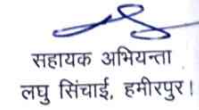 सहायक अभियन्ता
लघु सिंचाई, हमीरपुर।